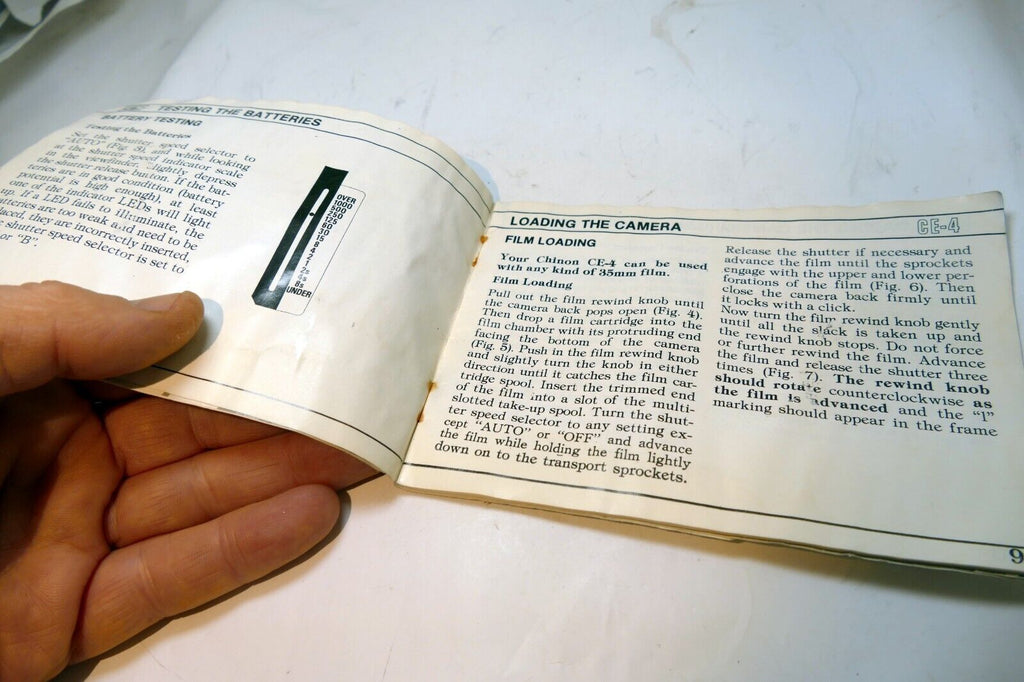 TESTING THE BATTERIES
BATTERY TESTING
Testing the Batteries
Set the shutter speed selector to
"AUTO" (Fig. 3) and while looking
at the shutter speed indicator scale
in the viewfinder, lightly depress
the shutter release button. If the bat-
teries are in good condition (battery
potential is high enough), at least
one of the indicator LEDs will light
up. If a LED fails to illuminate, the
batteries are too weak and need to be
they are incorrectly inserted,
shutter speed selector is set to
or "B".
OVER
1000
500
250
125
60
30
15
8
4
2
1
2s
4s
8s
UNDER
LOADING THE CAMERA
CE-4
FILM LOADING
Your Chinon CE-4 can be used
with any kind of 35mm film.
Film Loading
Pull out the film rewind knob until
the camera back pops open (Fig. 4).
Then drop a film cartridge into the
film chamber with its protruding end
facing the bottom of the camera
(Fig. 5). Push in the film rewind knob
and slightly turn the knob in either
direction until it catches the film car-
tridge spool. Insert the trimmed end
of the film into a slot of the multi-
slotted take-up spool. Turn the shut-
ter speed selector to any setting ex-
cept "AUTO" or "OFF" and advance
the film while holding the film lightly
down on to the transport sprockets.
Release the shutter if necessary and
advance the film until the sprockets
engage with the upper and lower per-
forations of the film (Fig. 6). Then
close the camera back firmly until
it locks with a click.
Now turn the film rewind knob gently
until all the slack is taken up and
the rewind knob stops. Do not force
or further rewind the film. Advance
the film and release the shutter three
times (Fig. 7). The rewind knob
should rotate counterclockwise as
the film is advanced and the "1"
marking should appear in the frame
9